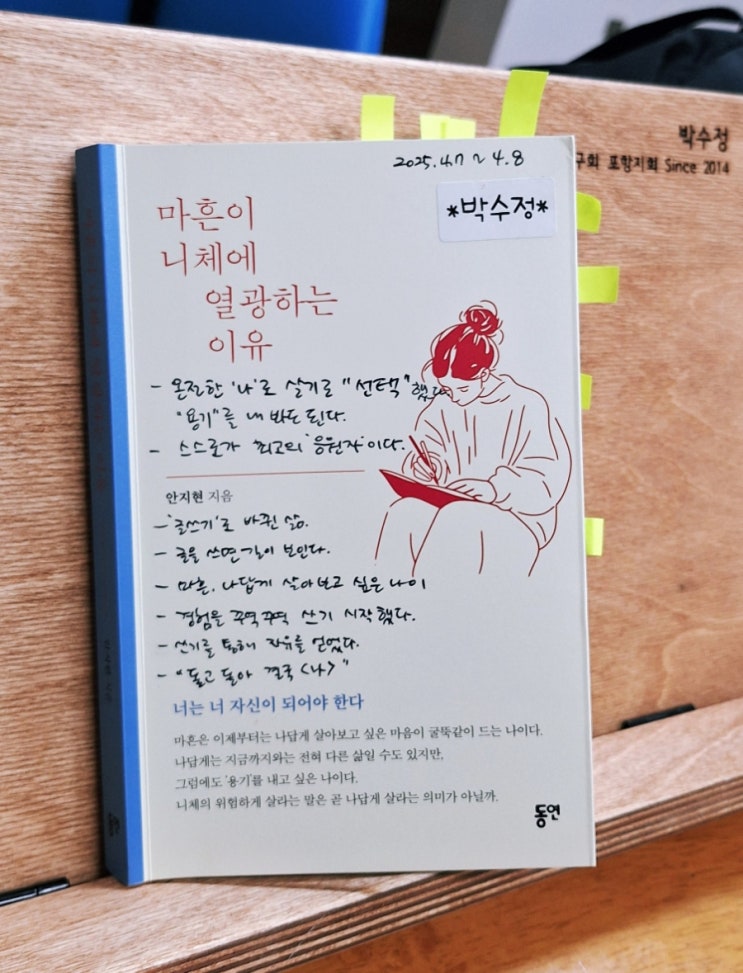 박수정
구회 포항지회 Since 2014
2025. 4.7 ~ 4.8
*박수정*
마흔이
니체에
열광하는
이유
- 온전한 '나'로 살기로 "선택"했다.
"용기"를 내 봐도 된다.
- 스스로가 최고의 '응원자'이다.
안지현 지음
- '글쓰기'로 바뀐 삶.
- 글을 쓰면 길이 보인다.
- 마흔, 나답게 살아보고 싶은 나이
- 경험을 꾸역꾸역 쓰기 시작했다.
- 쓰기를 통해 자유를 얻었다.
- "돌고 돌아 결국 <나>"
너는 너 자신이 되어야 한다
마흔은 이제부터는 나답게 살아보고 싶은 마음이 굴뚝같이 드는 나이다.
나답게는 지금까지와는 전혀 다른 삶일 수도 있지만,
그럼에도 '용기'를 내고 싶은 나이다.
니체의 위험하게 살라는 말은 곧 나답게 살라는 의미가 아닐까.
동연